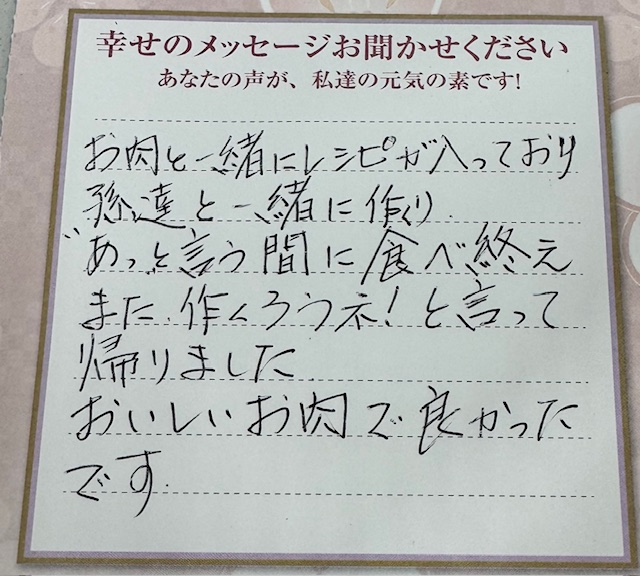 幸せのメッセージお聞かせください
あなたの声が、私達の元気の素です!
お肉と一緒にレシピが入っており
孫達と一緒に作り
"あっと言う間に食べ終え
また作くろうネ!と言って
帰りました
おいしいお肉で良かった
です